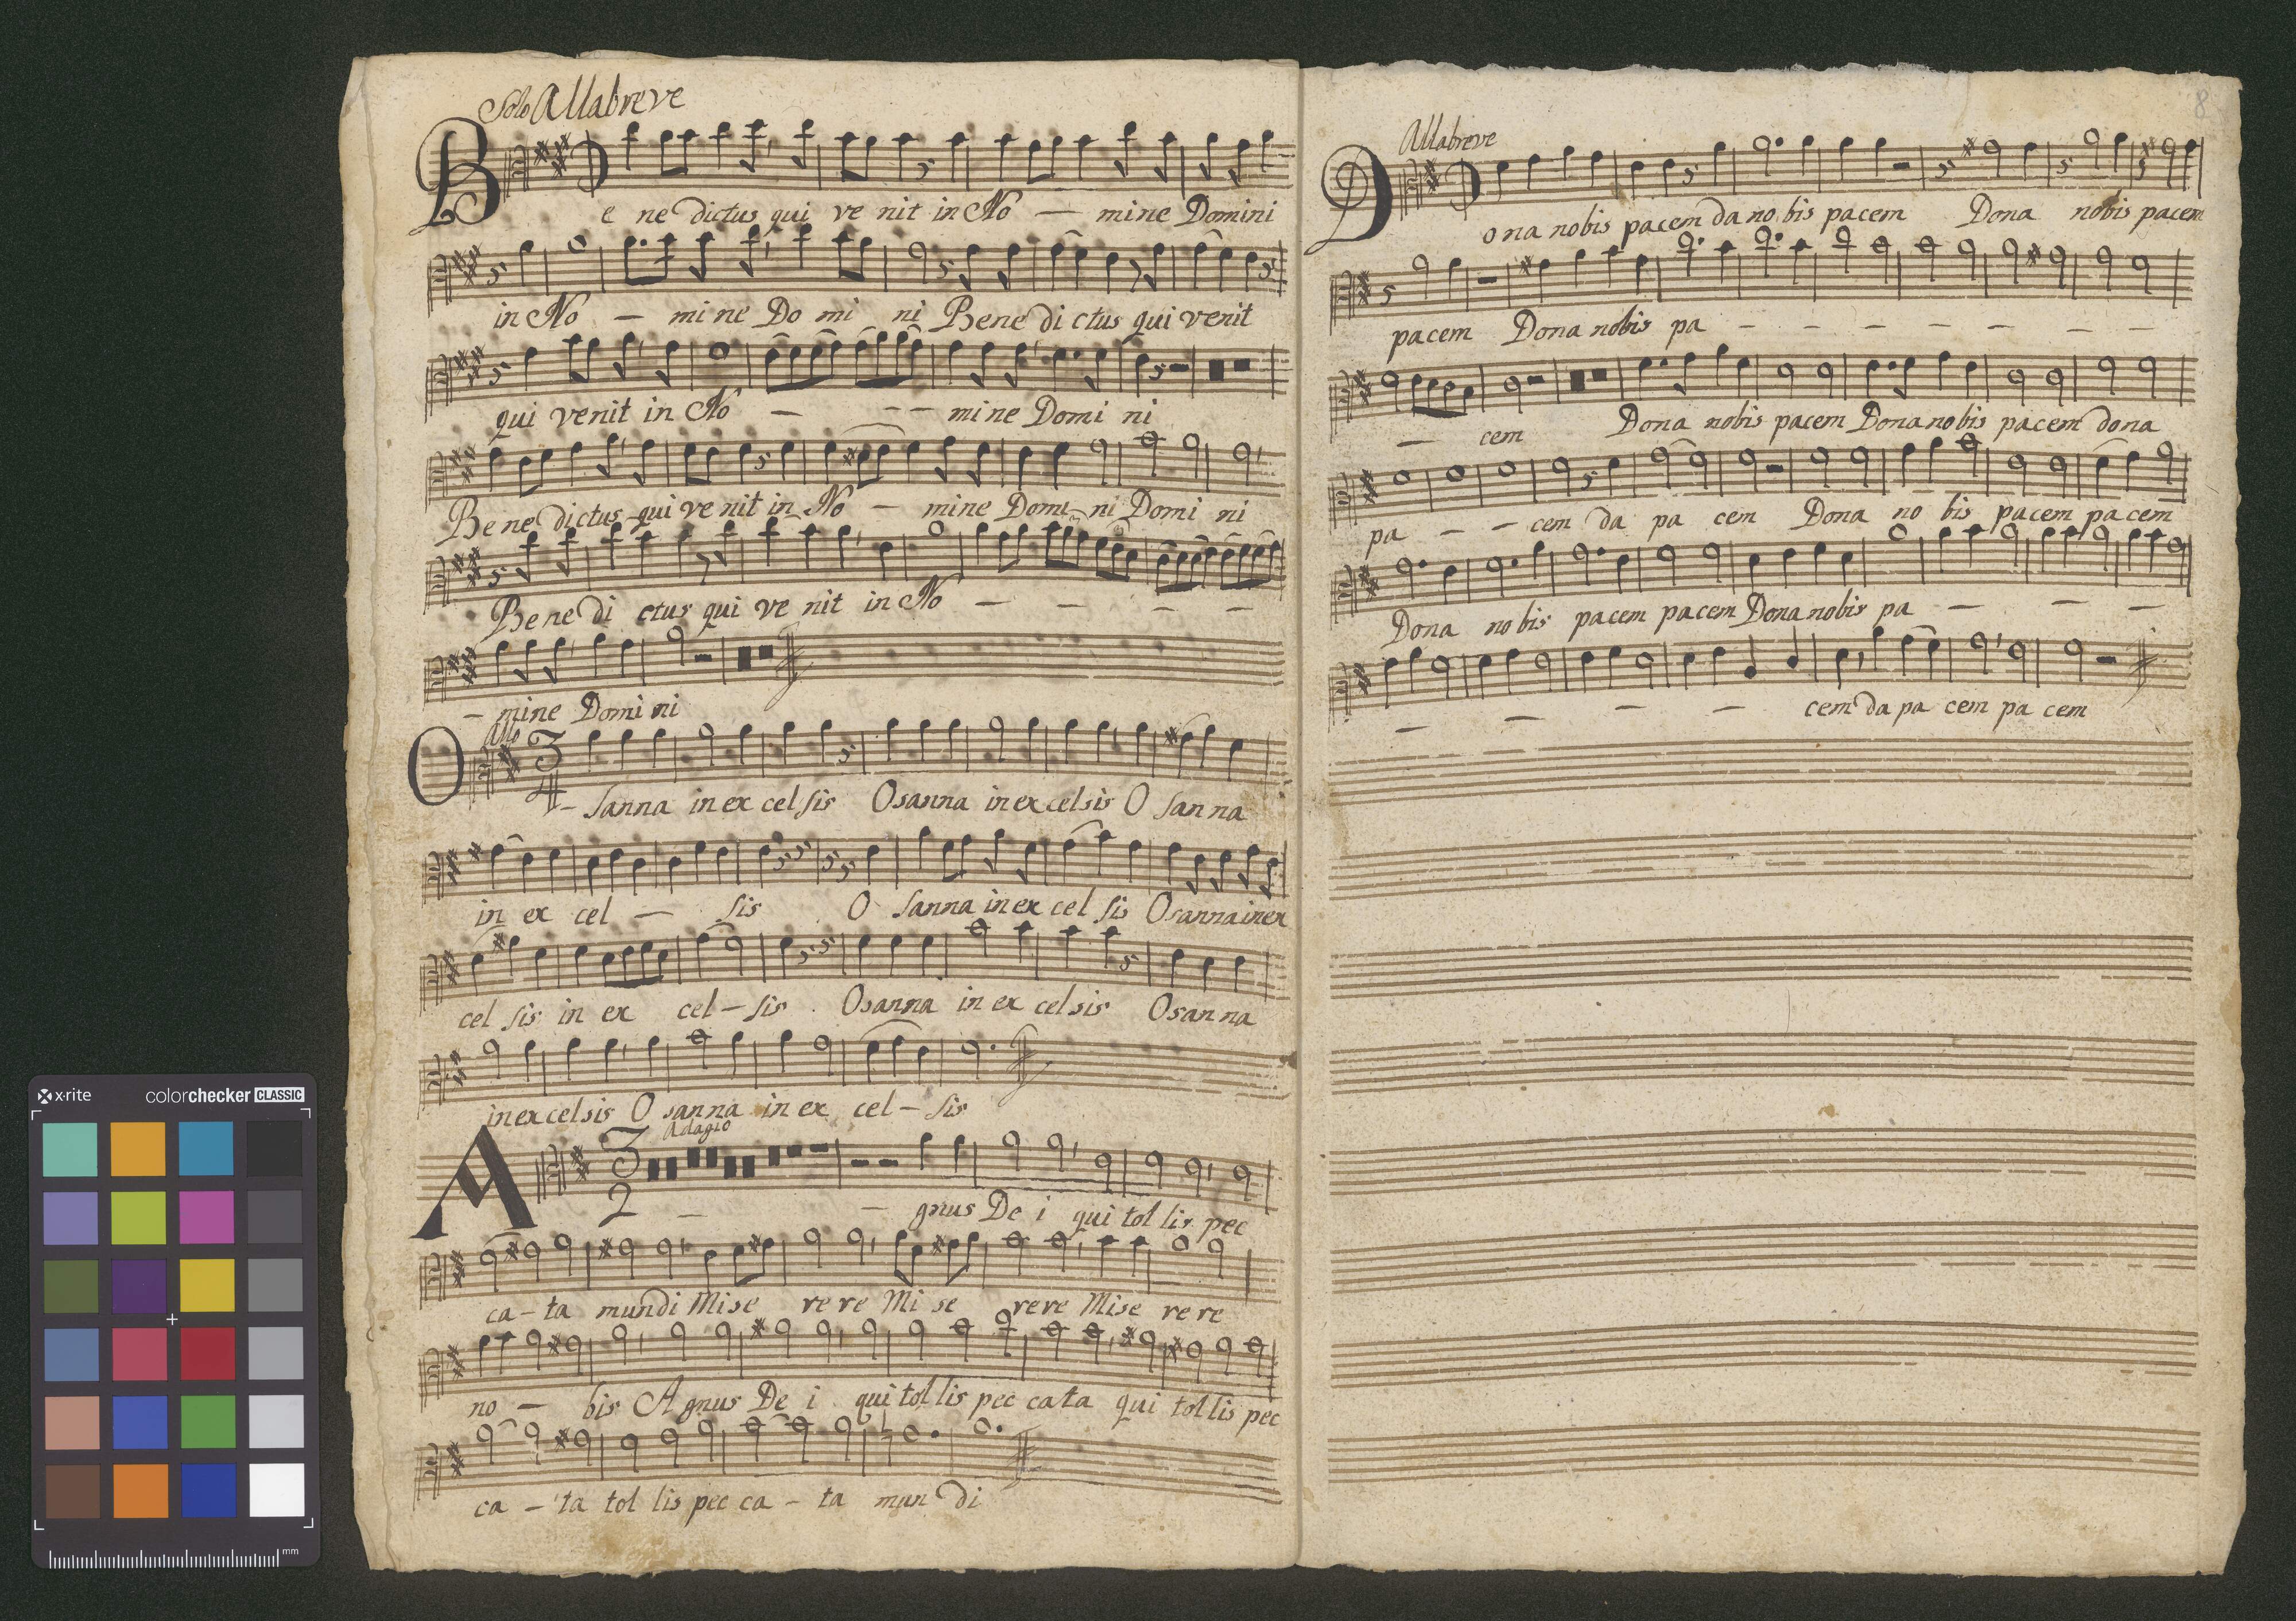 Solo Allabreve
Be ne dictus qui ve nit in No — mine Domini
in No — mi ne Do mi ni Bene di ctus qui venit
qui venit in No — — — mine Domi ni
Be ne dictus qui ve nit in No — mine Domi ni Domi ni
Bene di ctus qui ve nit in No — — — —
— mine Domi ni
Allo
3
4
O — sanna in ex cel sis Osanna in excelsis O san na
in ex cel — sis O sanna in ex cel sis Osanna in ex
cel sis in ex cel — sis Osanna in ex celsis Osan na
in excelsis O sanna in ex cel — sis
Adagio
3
2
A — — gnus De i qui tol lis pec
ca — ta mundi Mise re re Mi se rere Mise re re
no — bis Agnus De i qui tol lis pec ca ta qui tol lis pec
ca — ta tol lis pec ca — ta mun di
8
Allabreve
Dona nobis pacem da no bis pacem Dona nobis pacem
pacem Dona nobis pa — — — — — — —
— cem Dona nobis pacem Dona nobis pacem dona
pa — — cem da pa cem Dona no bis pacem pacem
Dona no bis pacem pacem Dona nobis pa — — —
— — — — cem da pa cem pa cem
x·rite colorchecker CLASSIC
mm